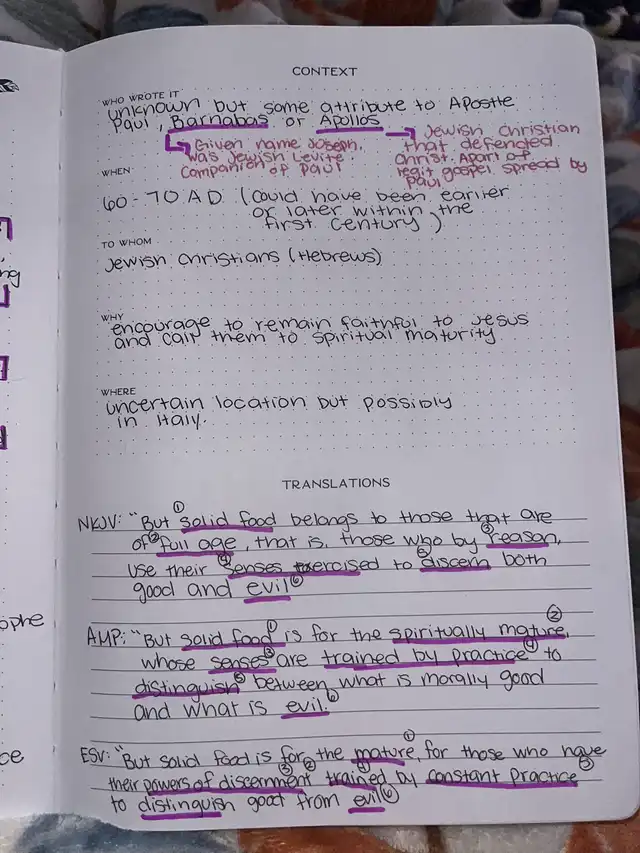 CONTEXT
WHO WROTE IT
unknown but some attribute to Apostle
Paul, Barnabas or Apollos
Given name Joseph,
was Jewish Levite.
Companion of Paul
Jewish Christian
that defended
Christ. Apart of
legit gospel spread by
Paul
WHEN
60-70 AD (Could have been earlier
or later within the
first century)
TO WHOM
Jewish Christians (Hebrews)
WHY
encourage to remain faithful to Jesus
and call them to spiritual maturity
WHERE
uncertain location but possibly
in Italy.
TRANSLATIONS
NKJV: "But ① solid food belongs to those that are
of ② full age, that is, those who by ③ reason,
use their ④ senses exercised to ⑤ discern both
good and evil ⑥
AMP: "But solid food ① is for the spiritually mature, ②
whose senses ③ are trained by practice ④ to
distinguish ⑤ between what is morally good
and what is evil. ⑥
ESV: "But solid food is for the mature, ① for those who have
their powers of discernment ③ ② trained by constant practice ⑤
to distinguish good from evil ⑥
ng
ophe
ce